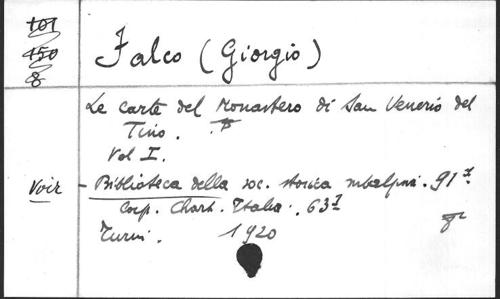 101
450
8
Falco (Giorgio)
Le carte del Monastero di San Venerio del
Tino.
Vol I.
Voir - Biblioteca della soc. storica subalpina. 91 I
Corp. Chart. Italiae. 63 I
Turin. 1920